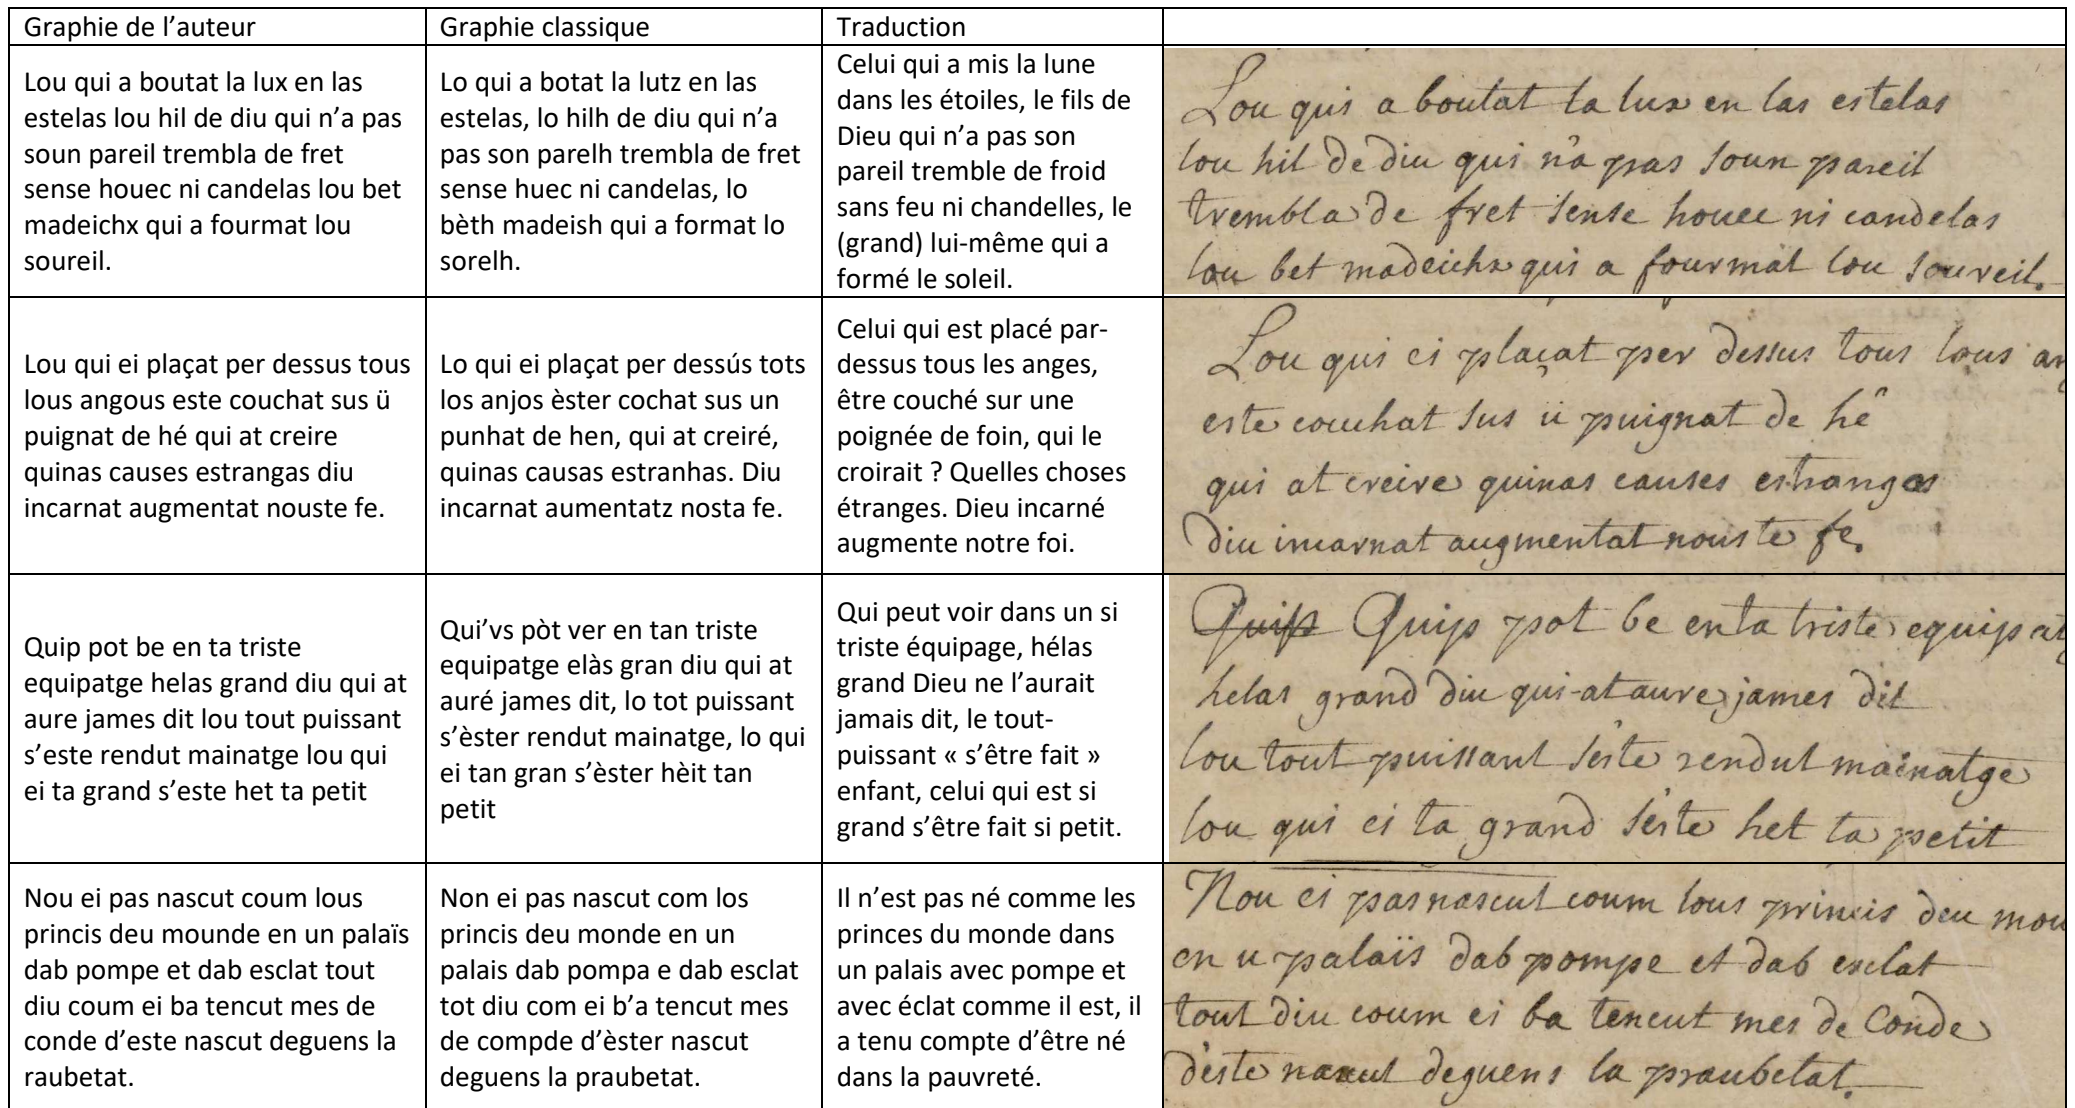 Graphie de l’auteur
Graphie classique
Traduction
Lou qui a boutat la lux en las
estelas lou hil de diu qui n’a pas
soun pareil trembla de fret
sense houec ni candelas lou bet
madeichx qui a fourmat lou
soureil.
Lo qui a botat la lutz en las
estelas, lo hilh de diu qui n’a
pas son parelh trembla de fret
sense huec ni candelas, lo
bèth madeish qui a format lo
sorelh.
Celui qui a mis la lune
dans les étoiles, le fils de
Dieu qui n’a pas son
pareil tremble de froid
sans feu ni chandelles, le
(grand) lui-même qui a
formé le soleil.
Lou qui a boutat la lux en las estelas
lou hil de diu qui n'a pas soun pareil
trembla de fret sense houec ni candelas
lou bet madeichx qui a fourmat lou soureil.
Lou qui ei plaçat per dessus tous
lous angous este couchat sus ü
puignat de hé qui at creire
quinas causes estrangas diu
incarnat augmentat nouste fe.
Lo qui ei plaçat per dessús tots
los anjos èster cochat sus un
punhat de hen, qui at creiré,
quinas causas estranhas. Diu
incarnat aumentatz nosta fe.
Celui qui est placé par-
dessus tous les anges,
être couché sur une
poignée de foin, qui le
croirait ? Quelles choses
étranges. Dieu incarné
augmente notre foi.
Lou qui ei plaçat per dessus tous lous an
este couchat sus ü puignat de hê
qui at creire quinas causes estrangas
diu incarnat augmentat nouste fe.
Quip pot be en ta triste
equipatge helas grand diu qui at
aure james dit lou tout puissant
s’este rendut mainatge lou qui
ei ta grand s’este het ta petit
Qui’vs pòt ver en tan triste
equipatge elàs gran diu qui at
auré james dit, lo tot puissant
s’èster rendut mainatge, lo qui
ei tan gran s’èster hèit tan
petit
Qui peut voir dans un si
triste équipage, hélas
grand Dieu ne l’aurait
jamais dit, le tout-
puissant « s’être fait »
enfant, celui qui est si
grand s’être fait si petit.
Quip Quip pot be en ta triste equipat
helas grand diu qui-at aure james dit
lou tout puissant s'este rendut mainatge
lou qui ei ta grand s'este het ta petit
Nou ei pas nascut coum lous
princis deu mounde en un palaïs
dab pompe et dab esclat tout
diu coum ei ba tencut mes de
conde d’este nascut deguens la
raubetat.
Non ei pas nascut com los
princis deu monde en un
palais dab pompa e dab esclat
tot diu com ei b’a tencut mes
de compde d’èster nascut
deguens la praubetat.
Il n’est pas né comme les
princes du monde dans
un palais avec pompe et
avec éclat comme il est, il
a tenu compte d’être né
dans la pauvreté.
Nou ei pas nascut coum lous princis deu mou
en u palaïs dab pompe et dab esclat
tout diu coum ei ba tencut mes de Conde
d'este nascut deguens la praubetat.